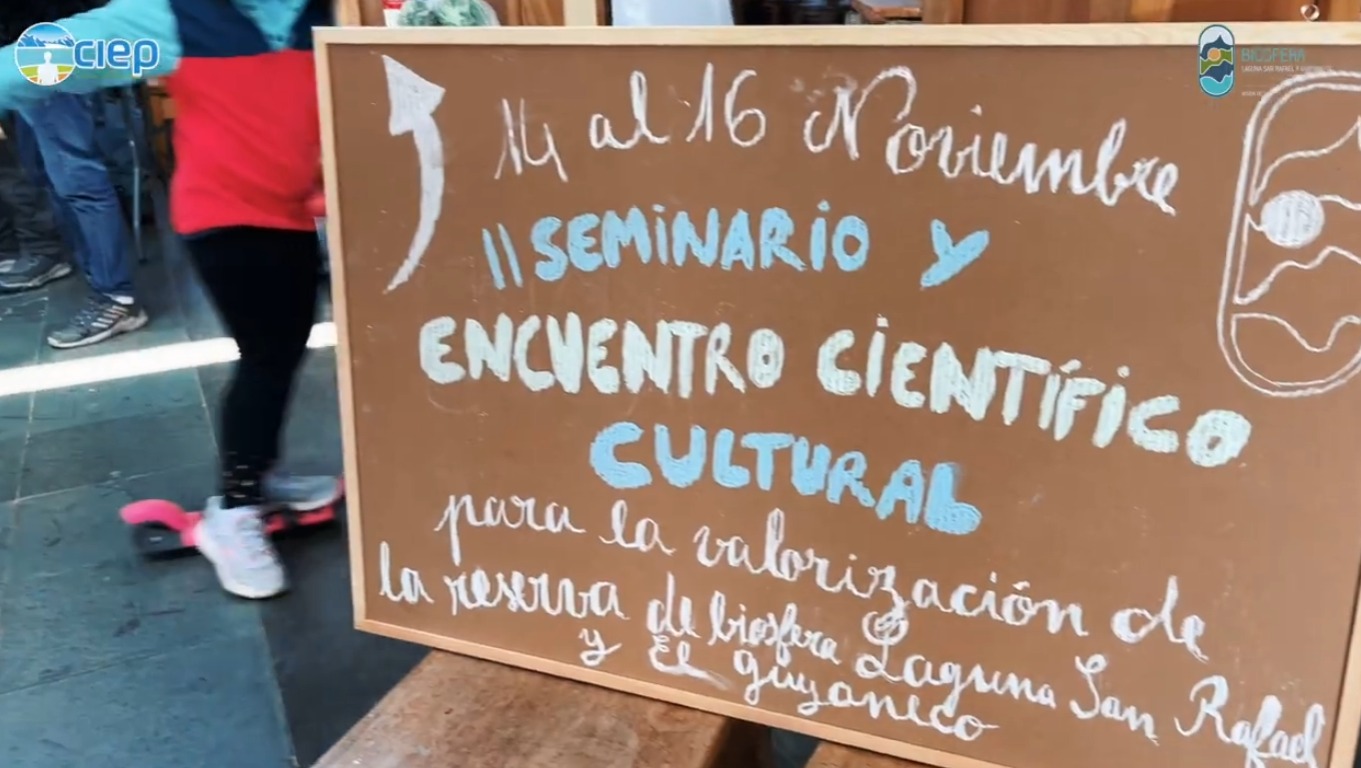 CIEP
BIOSFERA
14 al 16 Noviembre
II SEMINARIO Y
ENCUENTRO CIENTÍFICO
CULTURAL
para la valorización de
la reserva de biosfera Laguna San Rafael
y El guyaneco